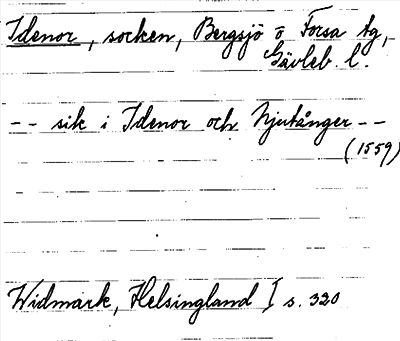 Idenor, socken, Bergsjö o Forsa tg,
Gävleb. l.
-- sik i Idenor och Njutånger --
(1559)
Widmark, Helsingland I s. 320